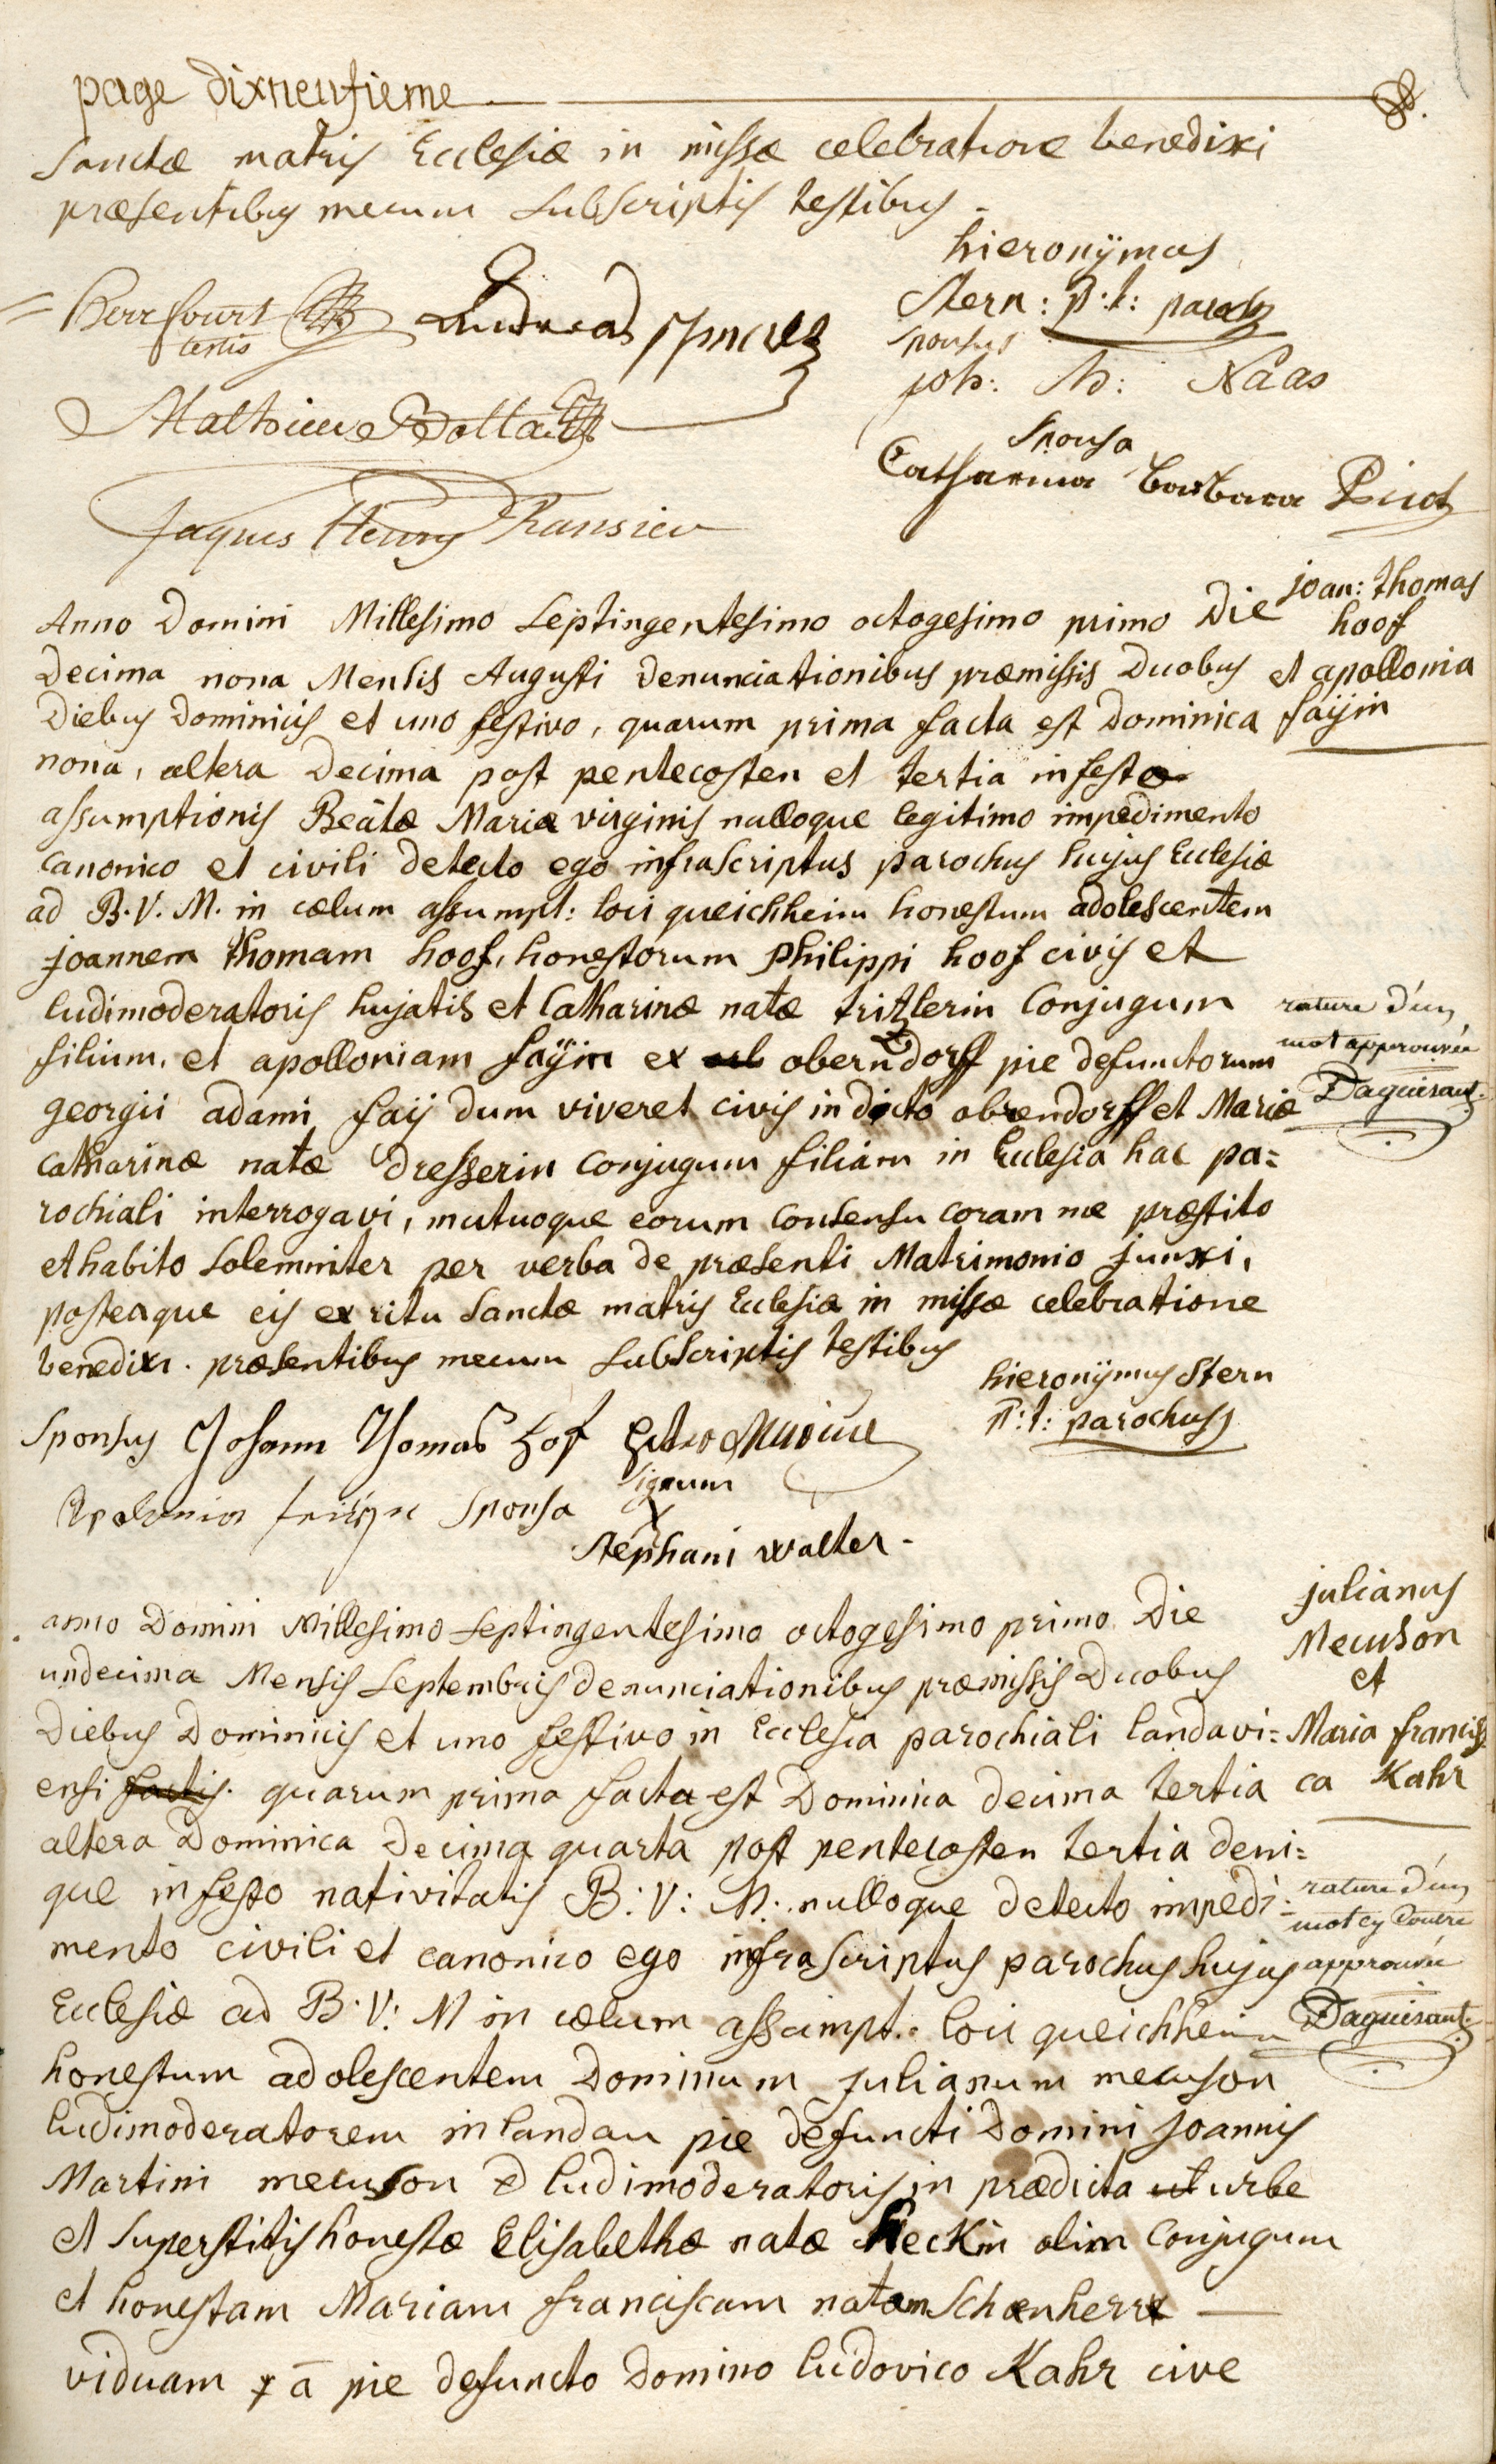 page dixneufieme
Sanctæ matris Ecclesiæ in missæ celebratione benedixi
præsentibus mecum subscriptis testibus.
hieronÿmus
Stern: p:t: paroch
testis
sponsus
joh: Naas
Mathieu
sponsa
Catharina barbara
Jaques Henry
joan: thomas
hoof
et apollonia
faÿin
Anno Domini Millesimo Septingentesimo octogesimo primo Die
Decima nona Mensis Augusti denunciationibus præmissis Duobus
Diebus Dominicis et uno festivo, quarum prima facta est Dominica
nona, altera Decima post pentecosten et tertia in festo
assumptionis Beatæ Mariæ virginis nulloque legitimo impedimento
canonico et civili detecto ego infrascriptus parochus hujus Ecclesiæ
ad B.V.M. in cœlum assumpt: loci queichheim honestum adolescentem
joannem thomam hoof, honestorum philippi hoof civis et
ludimoderatoris hujatis et Catharinæ natæ tritzlerin Conjugum
filium, et apolloniam faÿin ex oberndorff pie defunctorum
georgii adami faij dum viveret civis in dicto obrendorff et Mariæ
Catharinæ natæ Dresserin Conjugum filiam in Ecclesia hac pa=
rochiali interrogavi, mutuoque eorum consensu coram me præstito
et habito solemniter per verba de præsenti Matrimonio junxi,
posteaque eis ex ritu Sanctæ matris Ecclesiæ in missæ celebratione
benedixi. præsentibus mecum subscriptis testibus
rature d'un
mot approuvée
Daguisant
hieronÿmus Stern
p:t: parochus
Sponsus Johann Thomas Hof
signum
x
Stephani walter.
Sponsa
julianus
Mecuson
et
Maria francis
ca Kahr
anno Domini Millesimo Septingentesimo octogesimo primo Die
undecima Mensis Septembris denunciationibus præmissis Duobus
Diebus Dominicis et uno festivo in Ecclesia parochiali landavi=
ensi factis. quarum prima facta est Dominica decima tertia
altera Dominica Decima quarta post pentecosten tertia deni=
que in festo nativitatis B:V:M: nulloque detecto impedi=
mento civili et canonico ego infrascriptus parochus hujus
Ecclesiæ ad B:V:M in cœlum assumpt.: loci queichheim
honestum adolescentem Dominum julianum mecuson
ludimoderatorem in landau pie defuncti Domini joannis
Martini mecuson ludimoderatoris in prædicta ut urbe
et superstitis honestæ Elisabethæ natæ Heckin olim Conjugum
et honestam Mariam franciscam natam Schœnherr
viduam à pie defuncto Domino ludovico Kahr cive
rature d'un
mot cy contre
approuvée
Daguisant